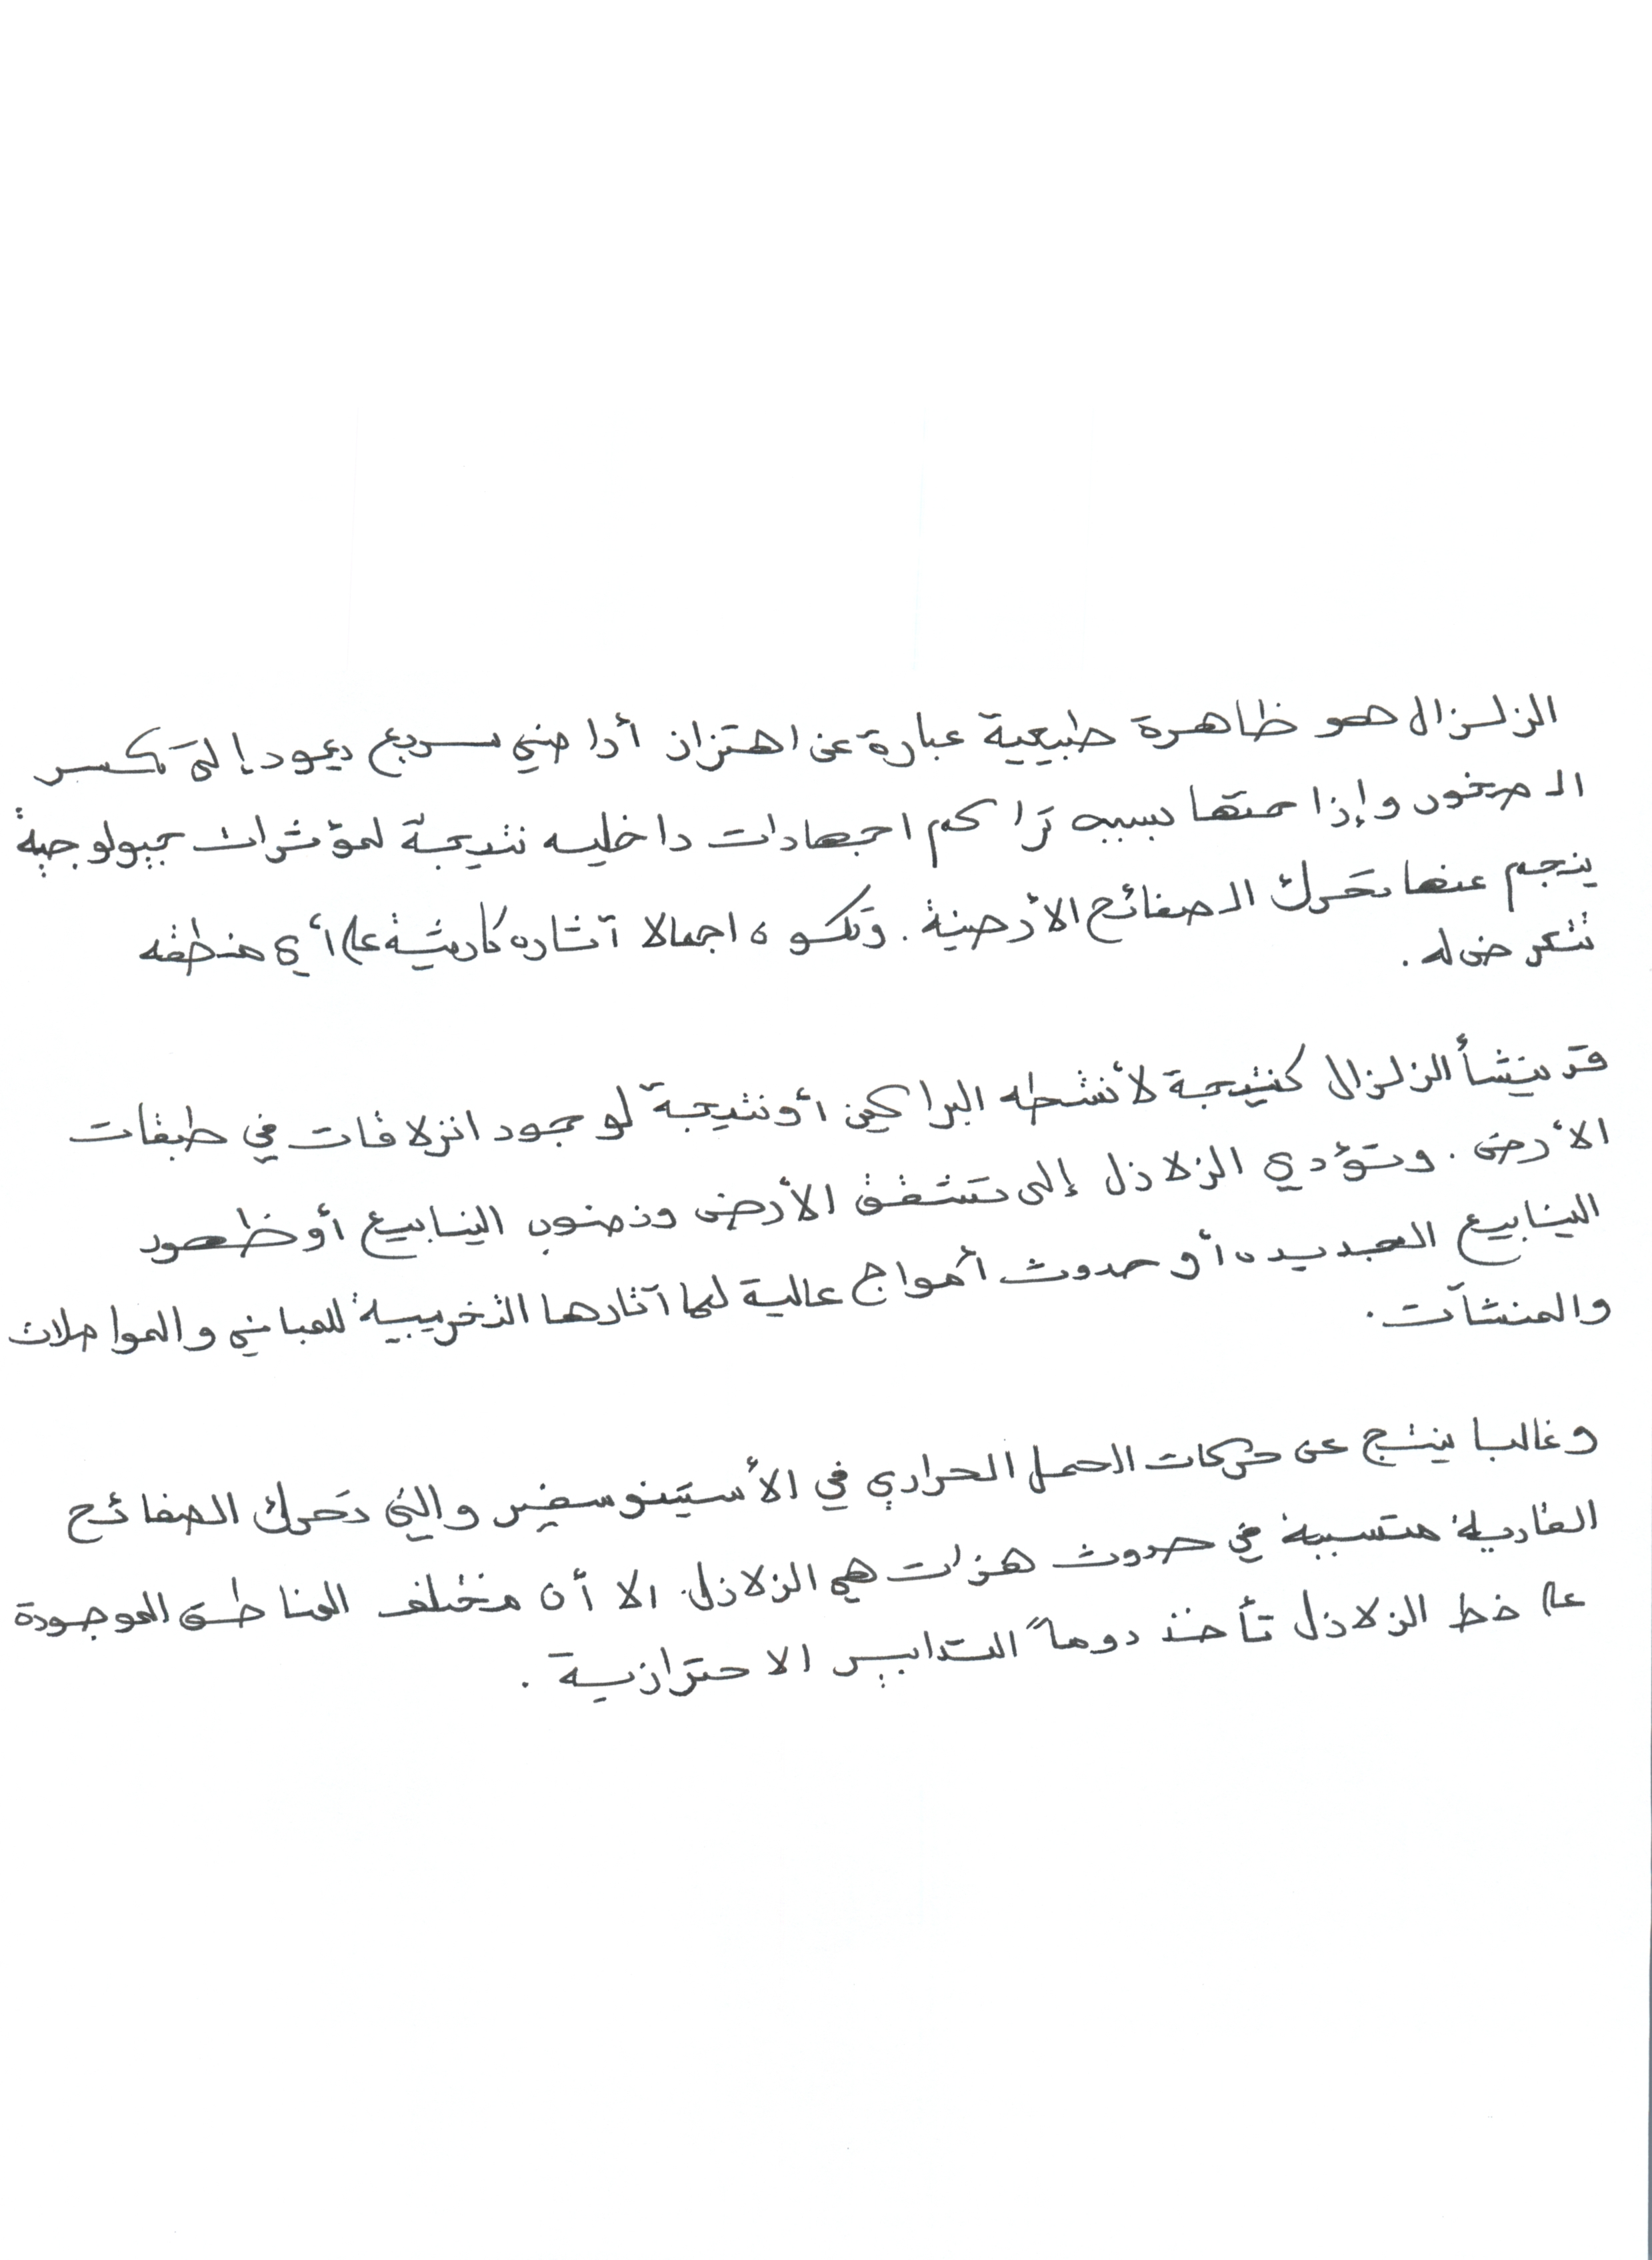 الزلزال هو ظاهرة طبيعية عبارة عن اهتزاز أراضي سريع يعود إلى تكسر
الصخور وإذا حتها بسبب تراكم اجهادات داخليه نتيجة لمؤثرات جيولوجية
ينجم عنها تحرك الصفائح الأرضية. وتكون اجمالا آثاره كارثية على أي منطقه
تتعرض له.
قد ينشأ الزلزال كنتيجة لأنشطه البراكين أو نتيجة لوجود انزلاقات في طبقات
الأرض. وتؤدي الزلازل إلى تشقق الأرض ونضوب الينابيع أو ظهور
الينابيع الجديده أو حدوث أمواج عالية لها آثارها التخريبية للمباني والمواصلات
والمنشآت.
وغالبا ينتج عن حركات الحمل الحراري في الأستينوسفير والتي تحرك الصفائح
القارية متسببة في حدوث هزات هي الزلازل. الا أن مختلف المناطق الموجودة
على خط الزلازل تأخذ دوماً التدابير الاحترازية.